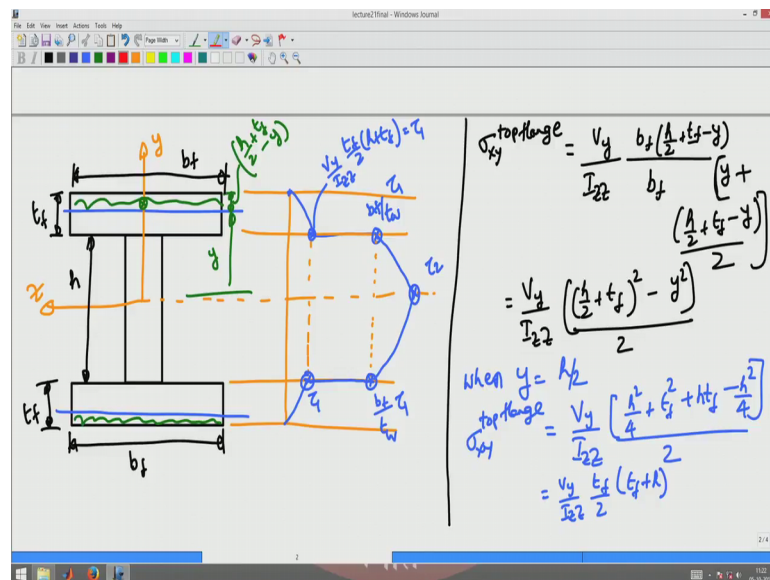 lecture21final - Windows Journal
File Edit View Insert Actions Tools Help
Page Width
B I
y
b_f
(h/2 + t_f - y)
V_y/I_zz t_f/2 (h+t_f) = τ_1
t_f
y
h
z
τ_1
b_f/t_w
τ_2
t_f
b_f
τ_1
b_f/t_w τ_1
σ_xy^top flange = V_y/I_zz b_f(h/2 + t_f - y)/b_f [y +
(h/2 + t_f - y)/2]
= V_y/I_zz ((h/2 + t_f)^2 - y^2)/2
when y = h/2
σ_xy^top flange = V_y/I_zz [h^2/4 + t_f^2 + ht_f - h^2/4]/2
= V_y/I_zz t_f/2 (t_f + h)
2
2 / 4
11:22